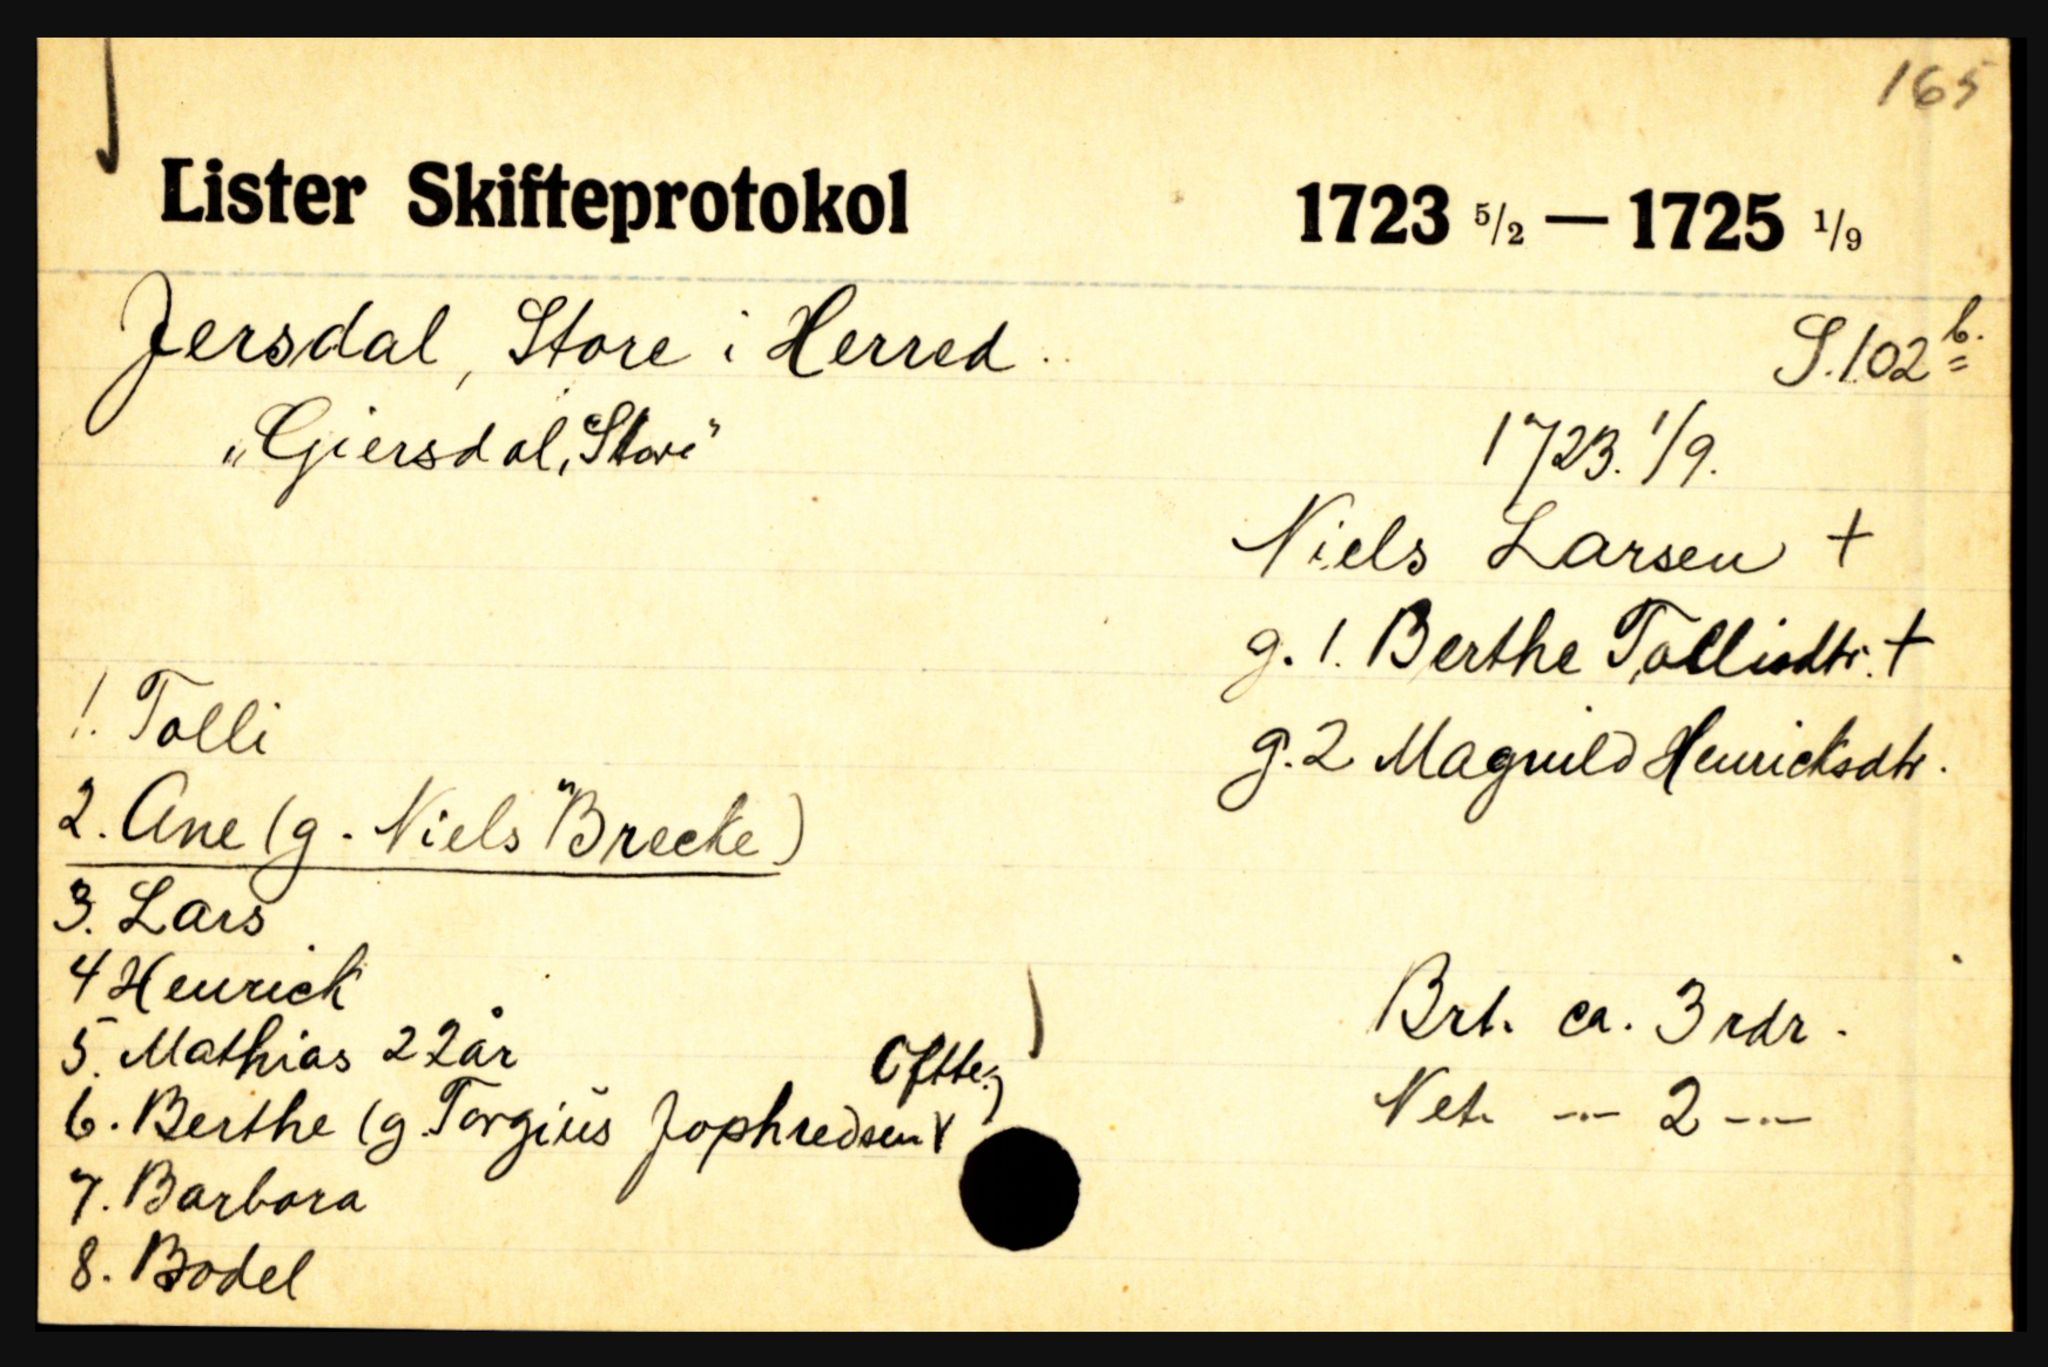 165
Lister Skifteprotokol 1723 5/2 — 1725 1/9
Jersdal, Store i Herred. S.102 b.
"Giersdal, Store" 1723. 1/9.
Niels Larsen +
g. 1. Berthe Tollisdtr. +
g. 2 Magnild Henricksdtr.
1. Tolli
2. Ane (g. Niels "Brecke)
3. Lars
4 Henrick
5. Mathias 22år
6. Berthe (g. Torgiüs Jophredsen
7. Barbara
8. Bodel
Brt. ca. 3 rdr.
Net. -"- 2 -"-